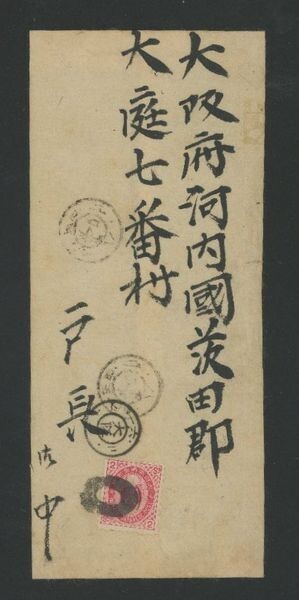 大阪府河内國茨田郡
大庭七番村
戸長
御中
2 2